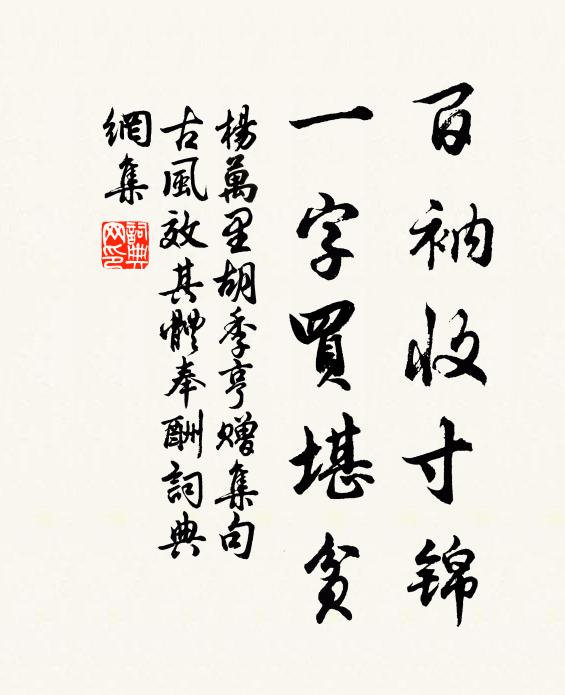 百衲收寸錦
一字買堪貧
楊萬里胡季亨贈集句
古風效其體奉酬詞典
網集
詞典
网印